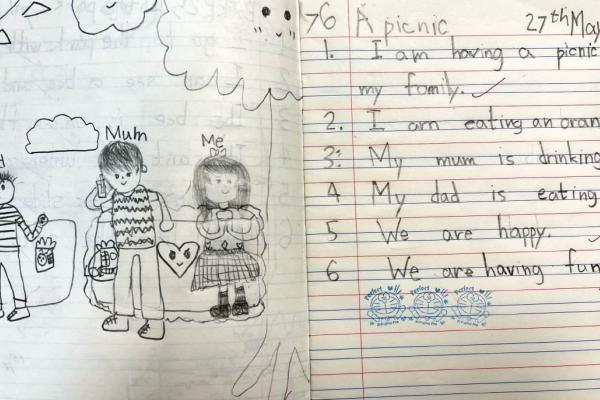 Mum
Me
76 A picnic 27th May
1. I am having a picnic
my family.
2. I am eating an oran
3. My mum is drinking
4 My dad is eating
5 We are happy.
6 We are having fun
Perfect Perfect Perfect